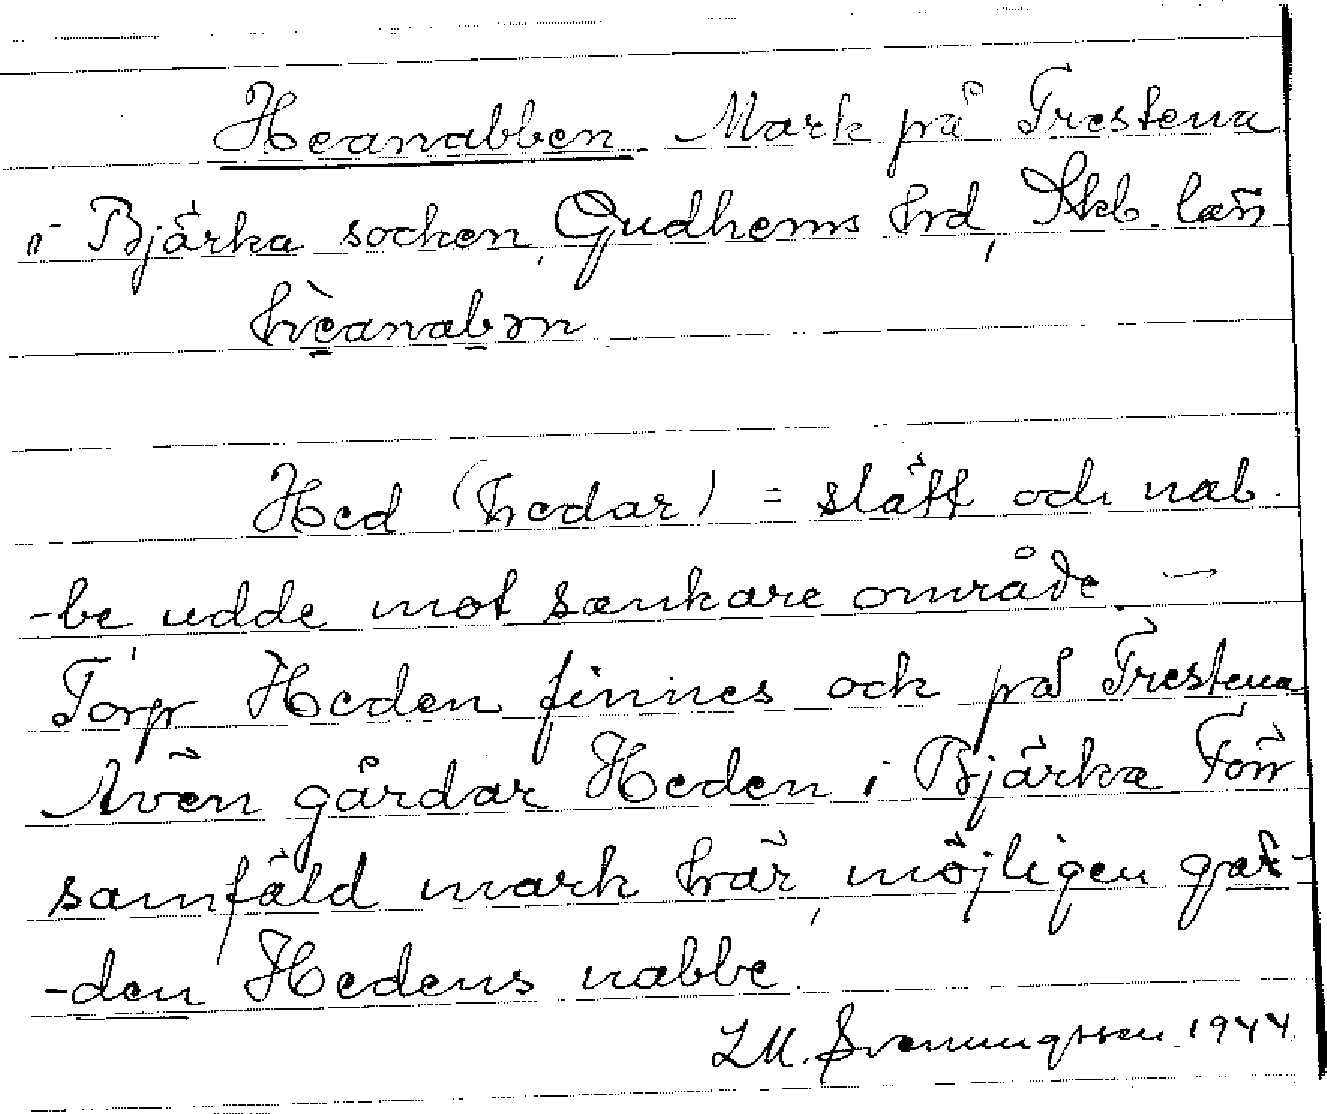 Heanabben. Mark på Trestena
i Bjärka socken, Gudhems hrd, Skb. län
hèanabm
Hed (hedar) = slätt och nab-
-be udde mot sænkare område. –
Torp Heden finnes ock på Trestena
Även gårdar Heden i Bjärka Förr
samfäld mark här, möjligen går-
-den Hedens nabbe.
LM. Svenungsson 1944